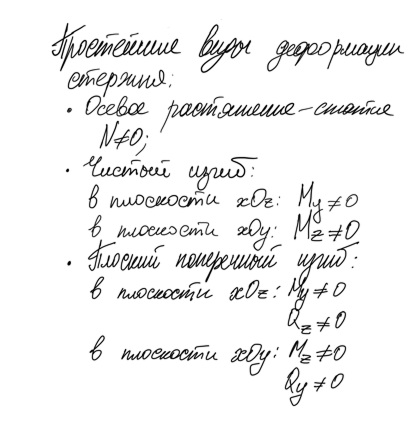 Простейшие виды деформации
стержня:
• Осевое растяжение-сжатие
N≠0;
• Чистый изгиб:
в плоскости xOz: My≠0
в плоскости xOy: Mz≠0
• Плоский поперечный изгиб:
в плоскости xOz: My≠0
Qz≠0
в плоскости xOy: Mz≠0
Qy≠0